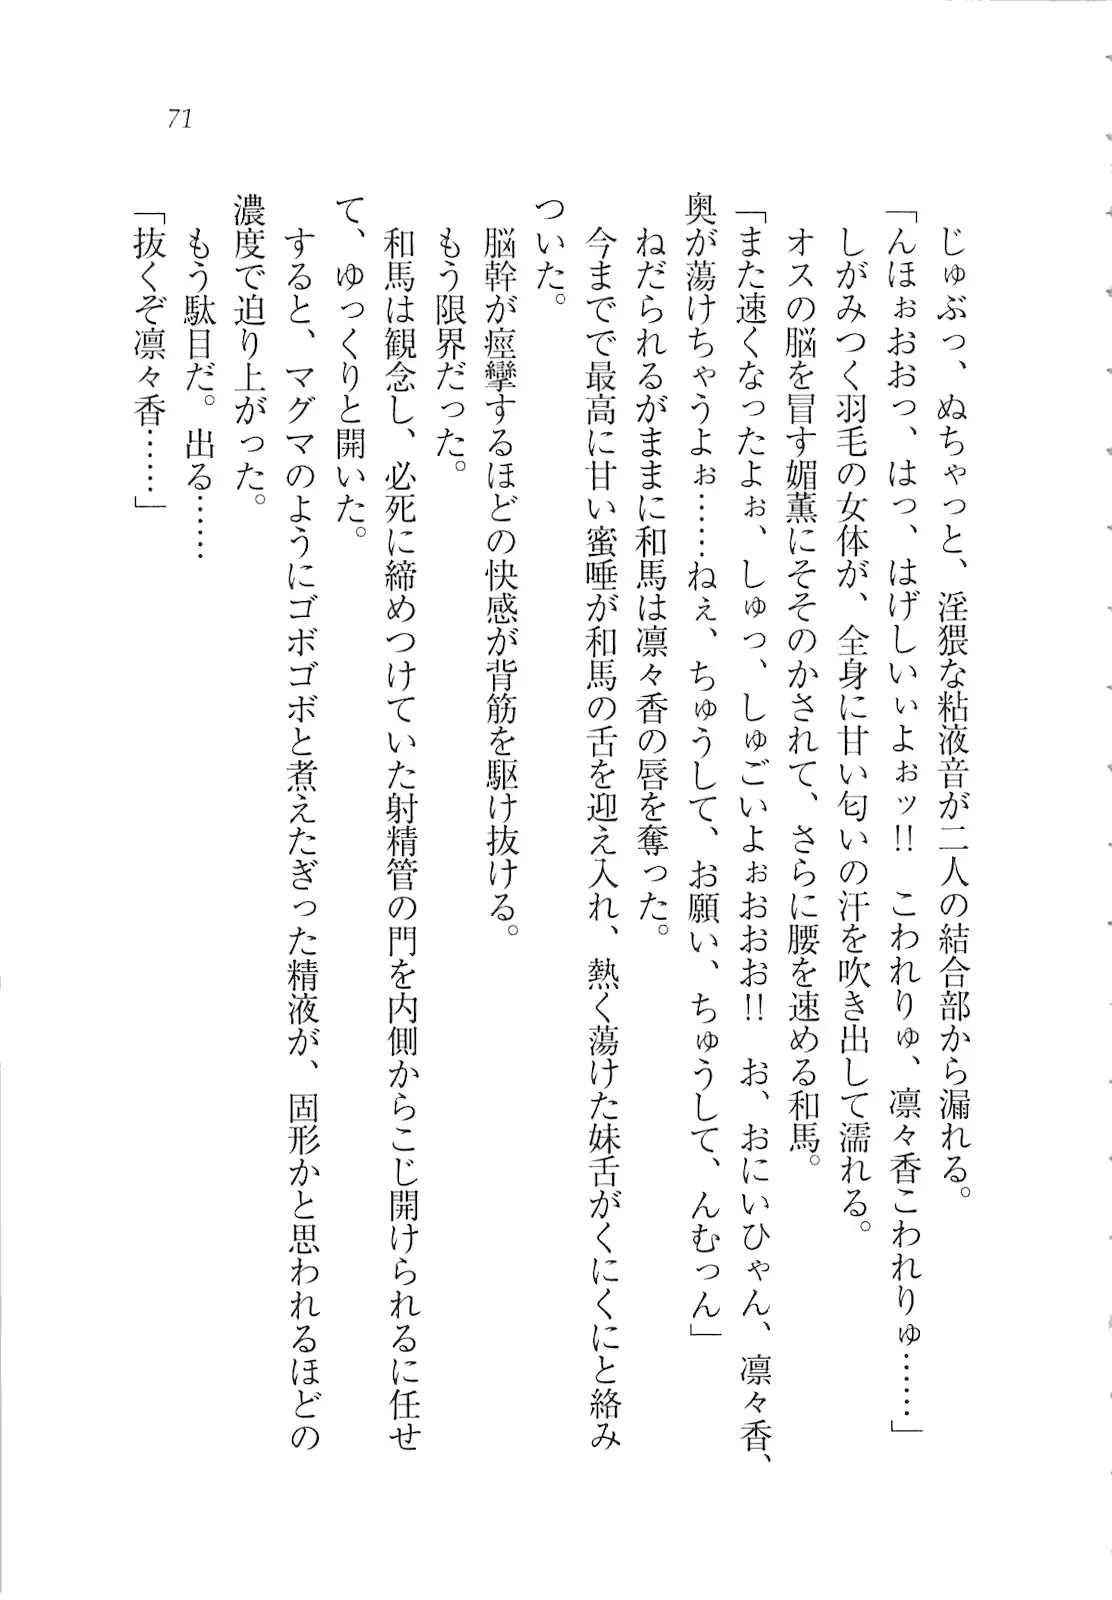 じゅぶっ、ぬちゃっと、淫猥な粘液音が二人の結合部から漏れる。
「んほぉおおっ、はっ、はげしいぃよぉッ!! こわれりゅ、凛々香こわれりゅ……」
しがみつく羽毛の女体が、全身に甘い匂いの汗を吹き出して濡れる。
オスの脳を冒す媚薫にそそのかされて、さらに腰を速める和馬。
「また速くなったよぉ、しゅっ、しゅごいよぉおおお!! お、おにいひゃん、凛々香、
奥が蕩けちゃうよぉ……ねぇ、ちゅうして、お願い、ちゅうして、んむっん」
ねだられるがままに和馬は凛々香の唇を奪った。
今までで最高に甘い蜜唾が和馬の舌を迎え入れ、熱く蕩けた妹舌がくにくにと絡み
ついた。
脳幹が痙攣するほどの快感が背筋を駆け抜ける。
もう限界だった。
和馬は観念し、必死に締めつけていた射精管の門を内側からこじ開けられるに任せ
て、ゆっくりと開いた。
すると、マグマのようにゴボゴボと煮えたぎった精液が、固形かと思われるほどの
濃度で迫り上がった。
もう駄目だ。出る……
「抜くぞ凛々香……」
71